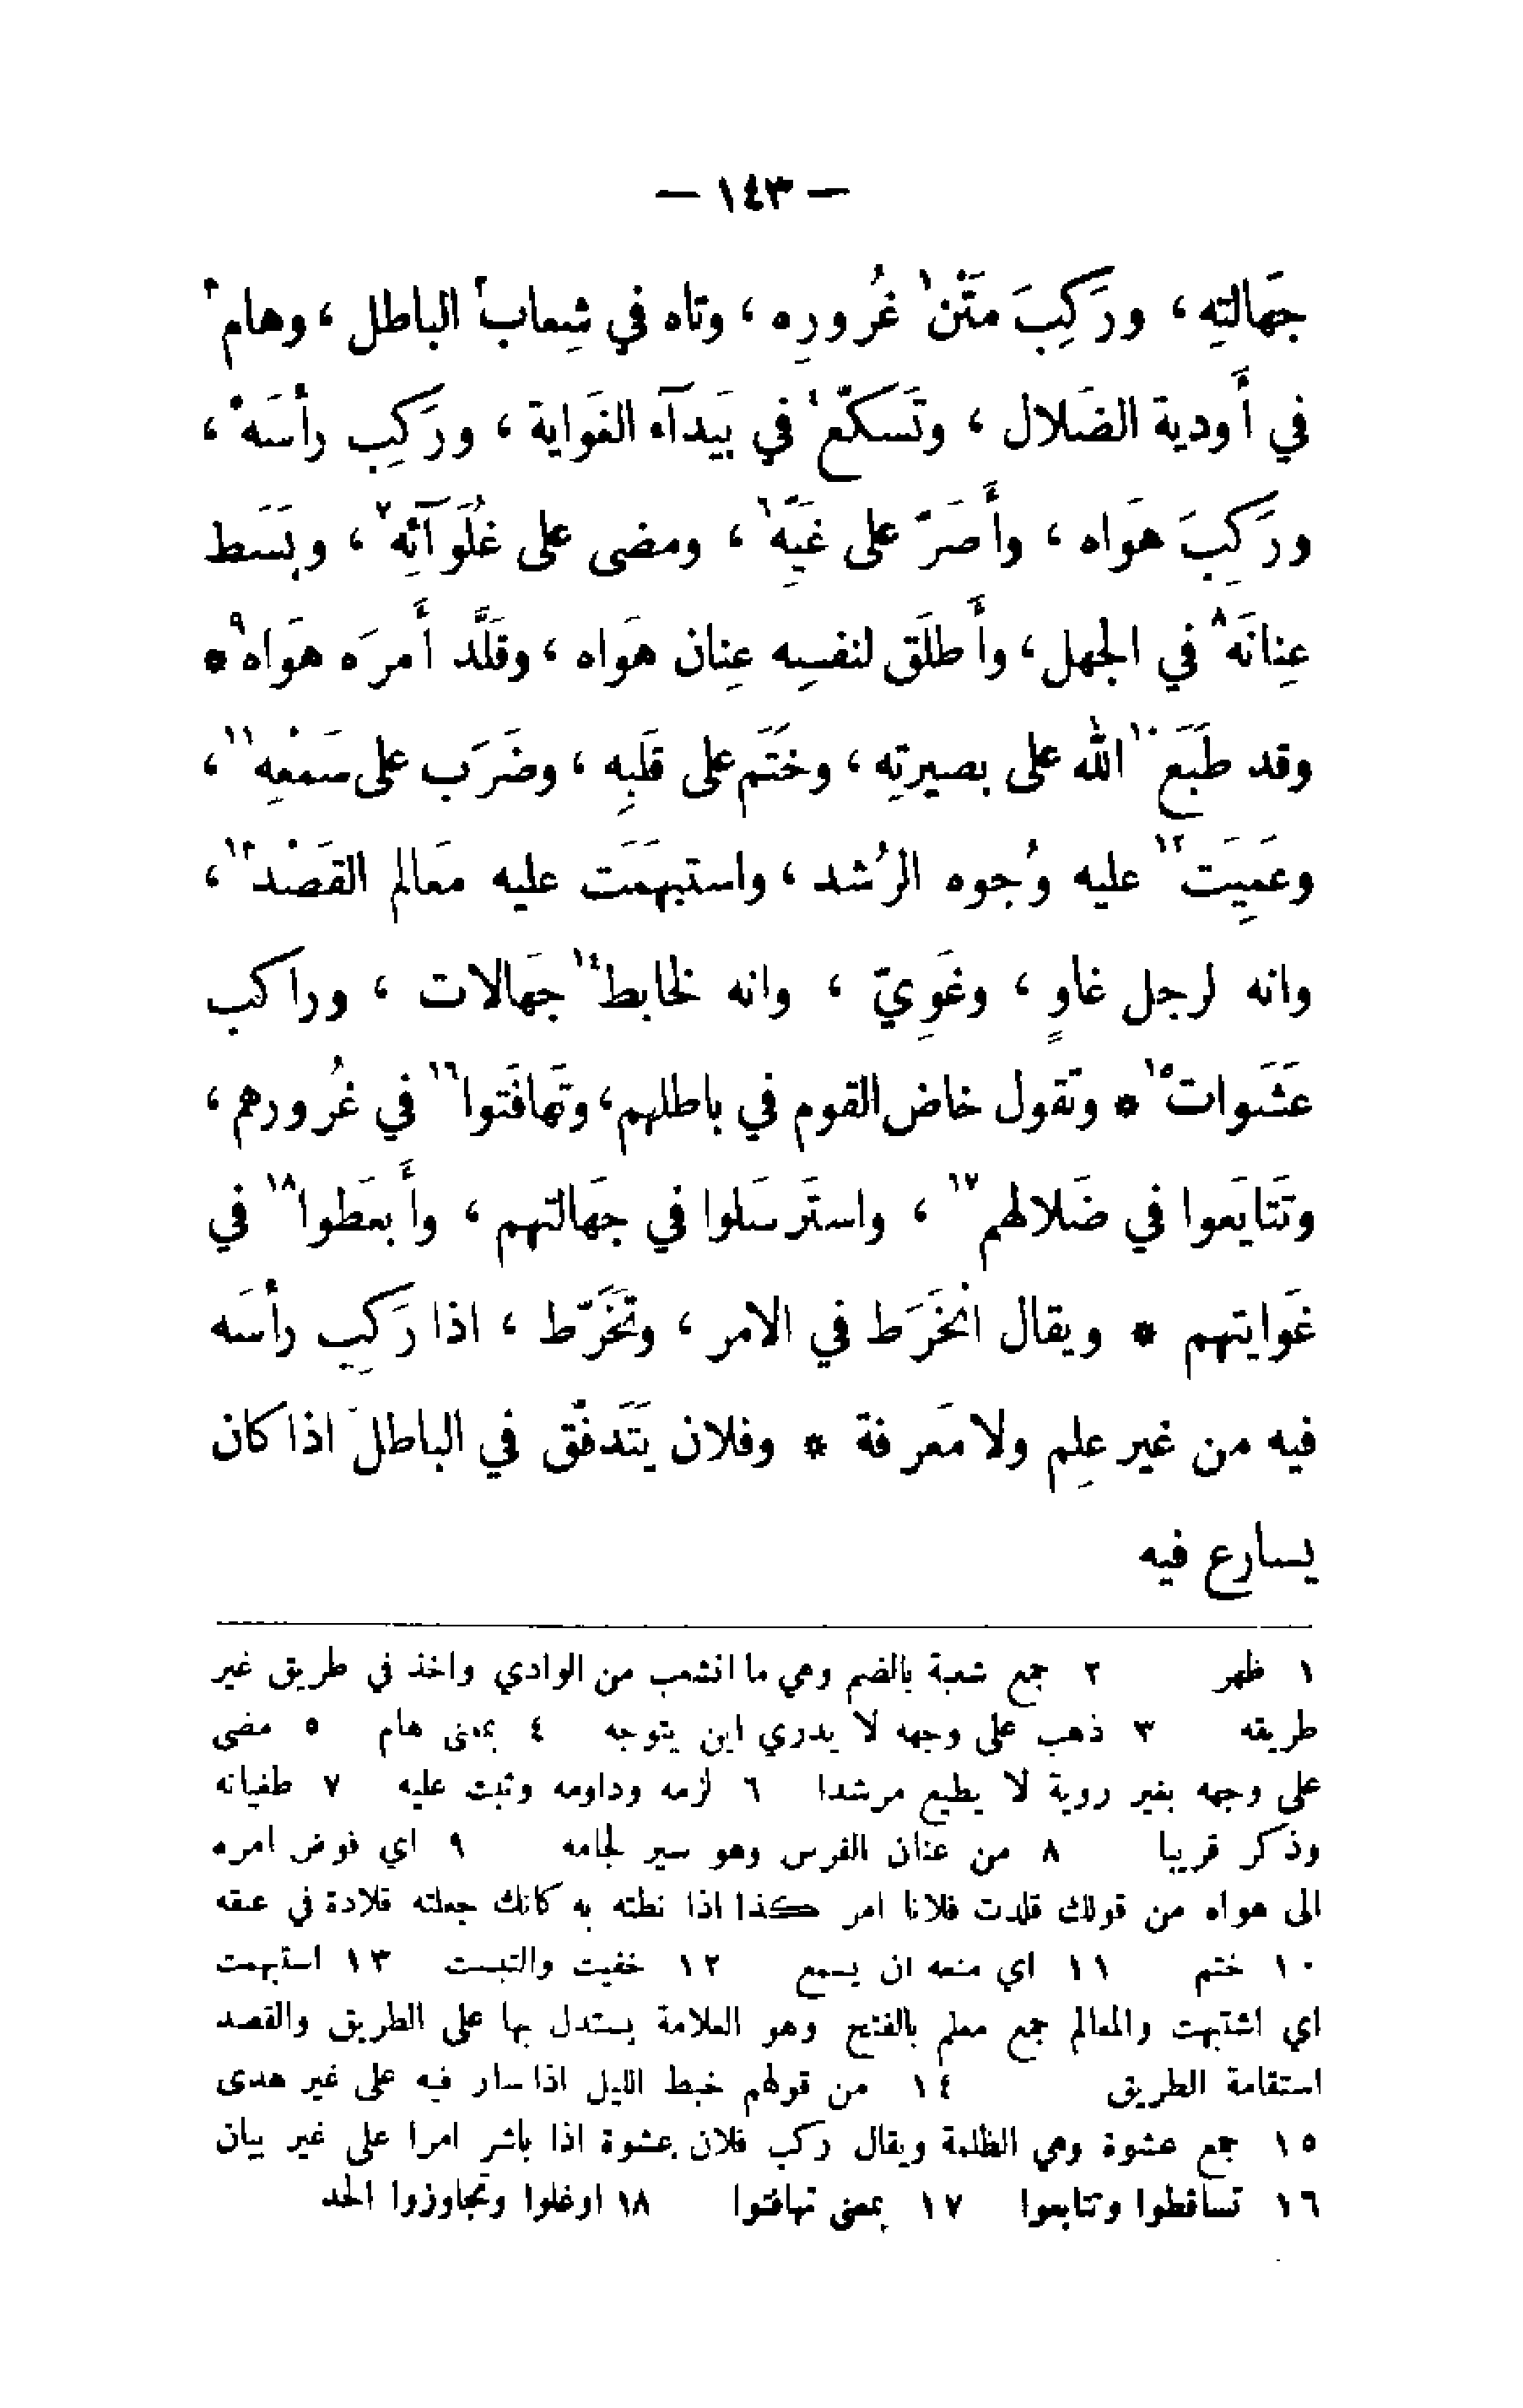 — ١٤٣ —
جَهالتِه ، ورَكِبَ مَتْن١ غُرورِه ، وتاه في شِعاب٢ الباطل ، وهام٣
في أَودية الضَلال ، وتَسكّع٤ في بَيدآء الغَواية ، ورَكِب رأسَه٥ ،
ورَكِبَ هَواه ، وأَصَرّ على غَيِّه٦ ، ومضى على غُلَوآئِه٧ ، وبَسَط
عِنانَه٨ في الجهل ، وأَطلَق لنفسِه عِنان هَواه ، وقَلَّد أَمرَه هَواه٩ *
وقد طَبَع١٠ الله على بصيرتِه ، وخَتَم على قَلبِه ، وضَرَب على سَمْعِه١١ ،
وعَمِيَت١٢ عليه وُجوه الرُشد ، واستبهَمَت عليه مَعالم القَصْد١٣ ،
وانه لرجل غاوٍ ، وغَوِيّ ، وانه لخابط١٤ جَهالات ، وراكب
عَشَوات١٥ * وتقول خاض القوم في باطلهم ، وتَهافَتوا١٦ في غُرورهم ،
وتَتايَعوا في ضَلالهم١٧ ، واستَرسَلوا في جَهالتهم ، وأَبعَطوا١٨ في
غَوايتهم * ويقال انخَرَط في الامر ، وتَخَرّط ، اذا رَكِب رأسَه
فيه من غير عِلم ولا مَعرفة * وفلان يَتَدفّق في الباطل اذا كان
يسارع فيه
١ ظهر ٢ جمع شعبة بالضم وهي ما انشعب من الوادي واخذ في طريق غير
طريقه ٣ ذهب على وجهه لا يدري اين يتوجه ٤ بمعنى هام ٥ مضى
على وجهه بغير روية لا يطيع مرشدا ٦ لزمه وداومه وثبت عليه ٧ طغيانه
وذكر قريبا ٨ من عنان الفرس وهو سير لجامه ٩ اي فوض امره
الى هواه من قولك قلدت فلانا امر كذا اذا نطته به كانك جعلته قلادة في عنقه
١٠ ختم ١١ اي منعه ان يسمع ١٢ خفيت والتبست ١٣ استبهمت
اي اشتبهت والمعالم جمع معلم بالفتح وهو العلامة يستدل بها على الطريق والقصد
استقامة الطريق ١٤ من قولهم خبط الليل اذا سار فيه على غير هدى
١٥ جمع عشوة وهي الظلمة ويقال ركب فلان عشوة اذا باشر امرا على غير بيان
١٦ تساقطوا وتتابعوا ١٧ بمعنى تهافتوا ١٨ اوغلوا وتجاوزوا الحد